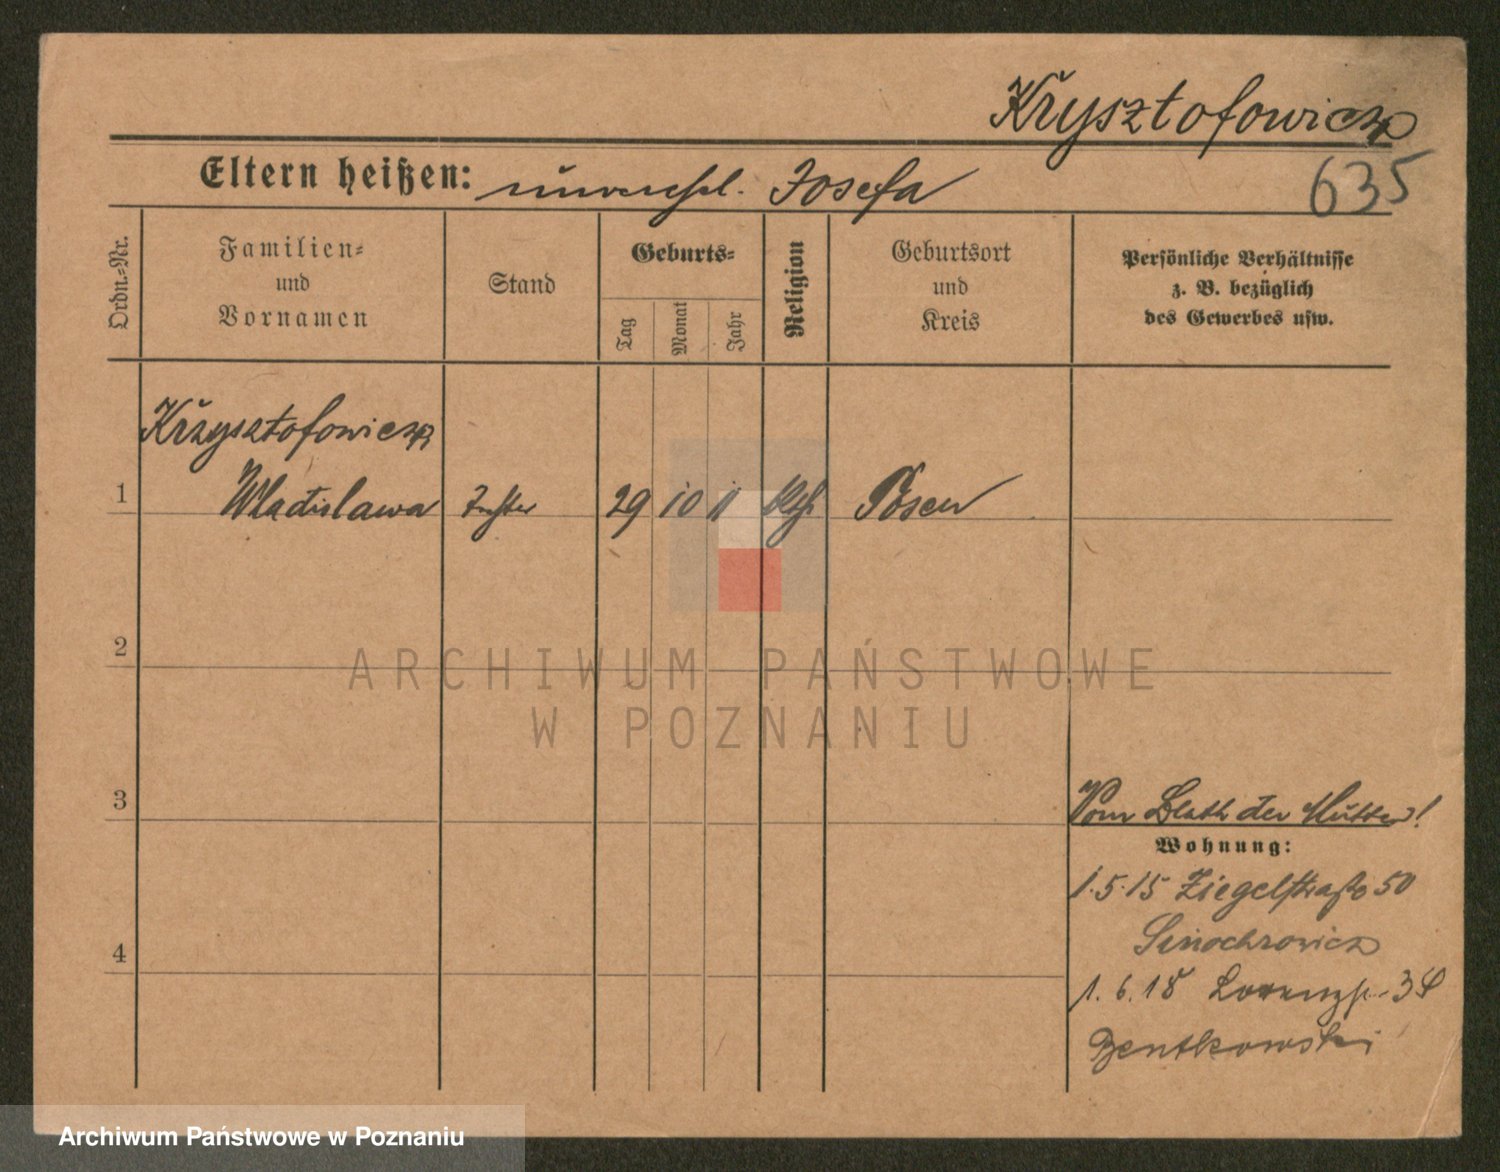 Krysztofowicz
635
Eltern heißen: unverehel. Josefa
Ordn.-Nr.
Familien-
und
Vornamen
Stand
Geburts-
Tag
Monat
Jahr
Religion
Geburtsort
und
Kreis
Persönliche Verhältnisse
z. B. bezüglich
des Gewerbes usw.
Krzysztofowicz
1 Wladislawa 29 10 11 kth Posen
2
ARCHIWUM PAŃSTWOWE
W POZNANIU
3
Vom Blatt der Mutter!
Wohnung:
1.5.15 Ziegelstraße 50
4
1.6.18
Bentkowski
Archiwum Państwowe w Poznaniu